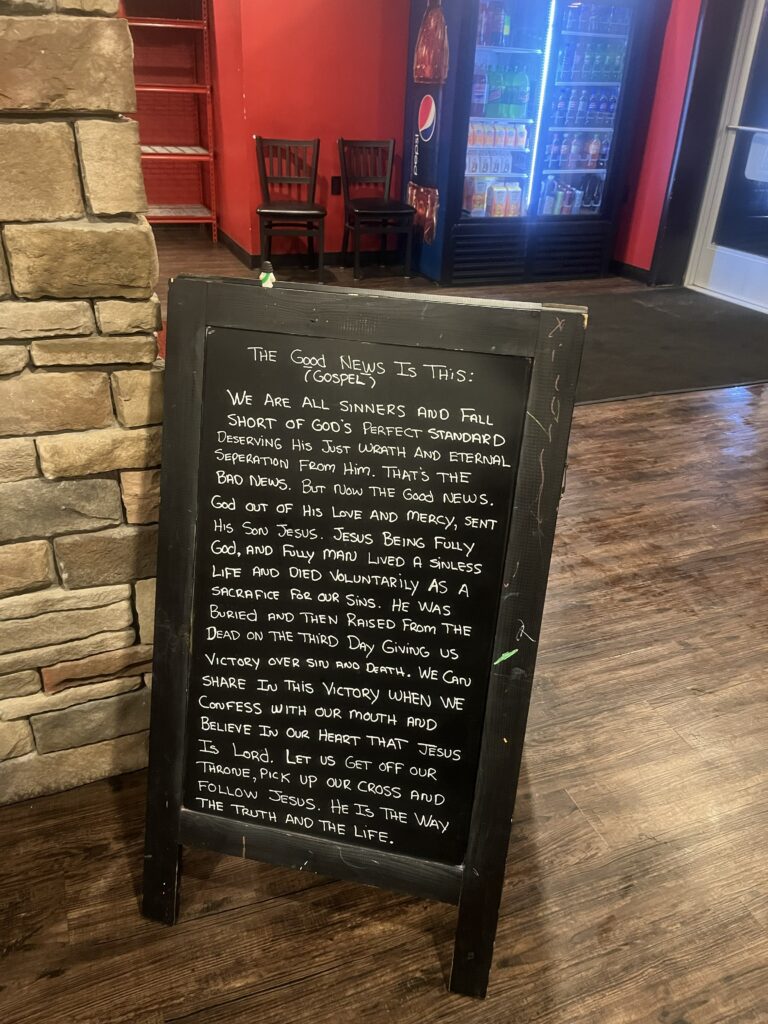 pepsi
THE GOOD NEWS IS THIS:
(GOSPEL)
WE ARE ALL SINNERS AND FALL
SHORT OF GOD'S PERFECT STANDARD
DESERVING HIS JUST WRATH AND ETERNAL
SEPERATION FROM HIM. THAT'S THE
BAD NEWS. BUT NOW THE GOOD NEWS.
GOD OUT OF HIS LOVE AND MERCY, SENT
HIS SON JESUS. JESUS BEING FULLY
GOD, AND FULLY MAN LIVED A SINLESS
LIFE AND DIED VOLUNTARILY AS A
SACRAFICE FOR OUR SINS. HE WAS
BURIED AND THEN RAISED FROM THE
DEAD ON THE THIRD DAY GIVING US
VICTORY OVER SIN AND DEATH. WE CAN
SHARE IN THIS VICTORY WHEN WE
CONFESS WITH OUR MOUTH AND
BELIEVE IN OUR HEART THAT JESUS
IS LORD. LET US GET OFF OUR
THRONE, PICK UP OUR CROSS AND
FOLLOW JESUS. HE IS THE WAY
THE TRUTH AND THE LIFE.